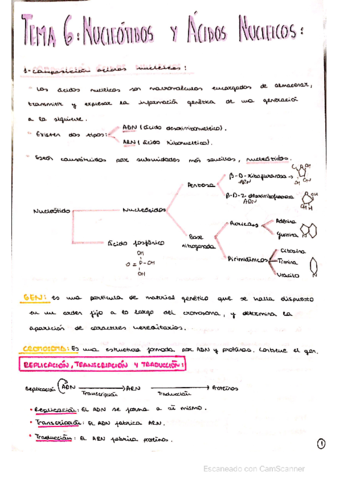 TEMA 6: NUCLEÓTIDOS Y ÁCIDOS NUCLEICOS:
1- Composición ácidos nucleicos:
- Los ácidos nucleicos son macromoléculas encargadas de almacenar,
transmitir y expresar la información genética de una generación
a la siguiente.
- Existen dos tipos:
ADN (Ácido desoxirribonucleico).
ARN (Ácido ribonucleico).
- Están constituidos por subunidades más sencillas, nucleótidos.
Nucleótido
Nucleósidos
Pentosa
β-D-Ribofuranosa
β-D-2-desoxirribofuranosa
Base nitrogenada
Púricas
Adenina
Guanina
Pirimidínicas
Citosina
Timina
Uracilo
Ácido fosfórico
OH
O = P - OH
OH
GEN: es una partícula de material genético que se halla dispuesto
en un orden fijo a lo largo del cromosoma, y determina la
aparición de caracteres hereditarios.
CROMOSOMA: Es una estructura formada por ADN y proteínas, contiene el gen.
REPLICACIÓN, TRANSCRIPCIÓN Y TRADUCCIÓN:
Replicación ADN → ARN → Proteínas
Transcripción Traducción
- Replicación: El ADN se forma a sí mismo.
- Transcripción: El ADN fabrica ARN.
- Traducción: El ARN fabrica proteínas.
1
Escaneado con CamScanner